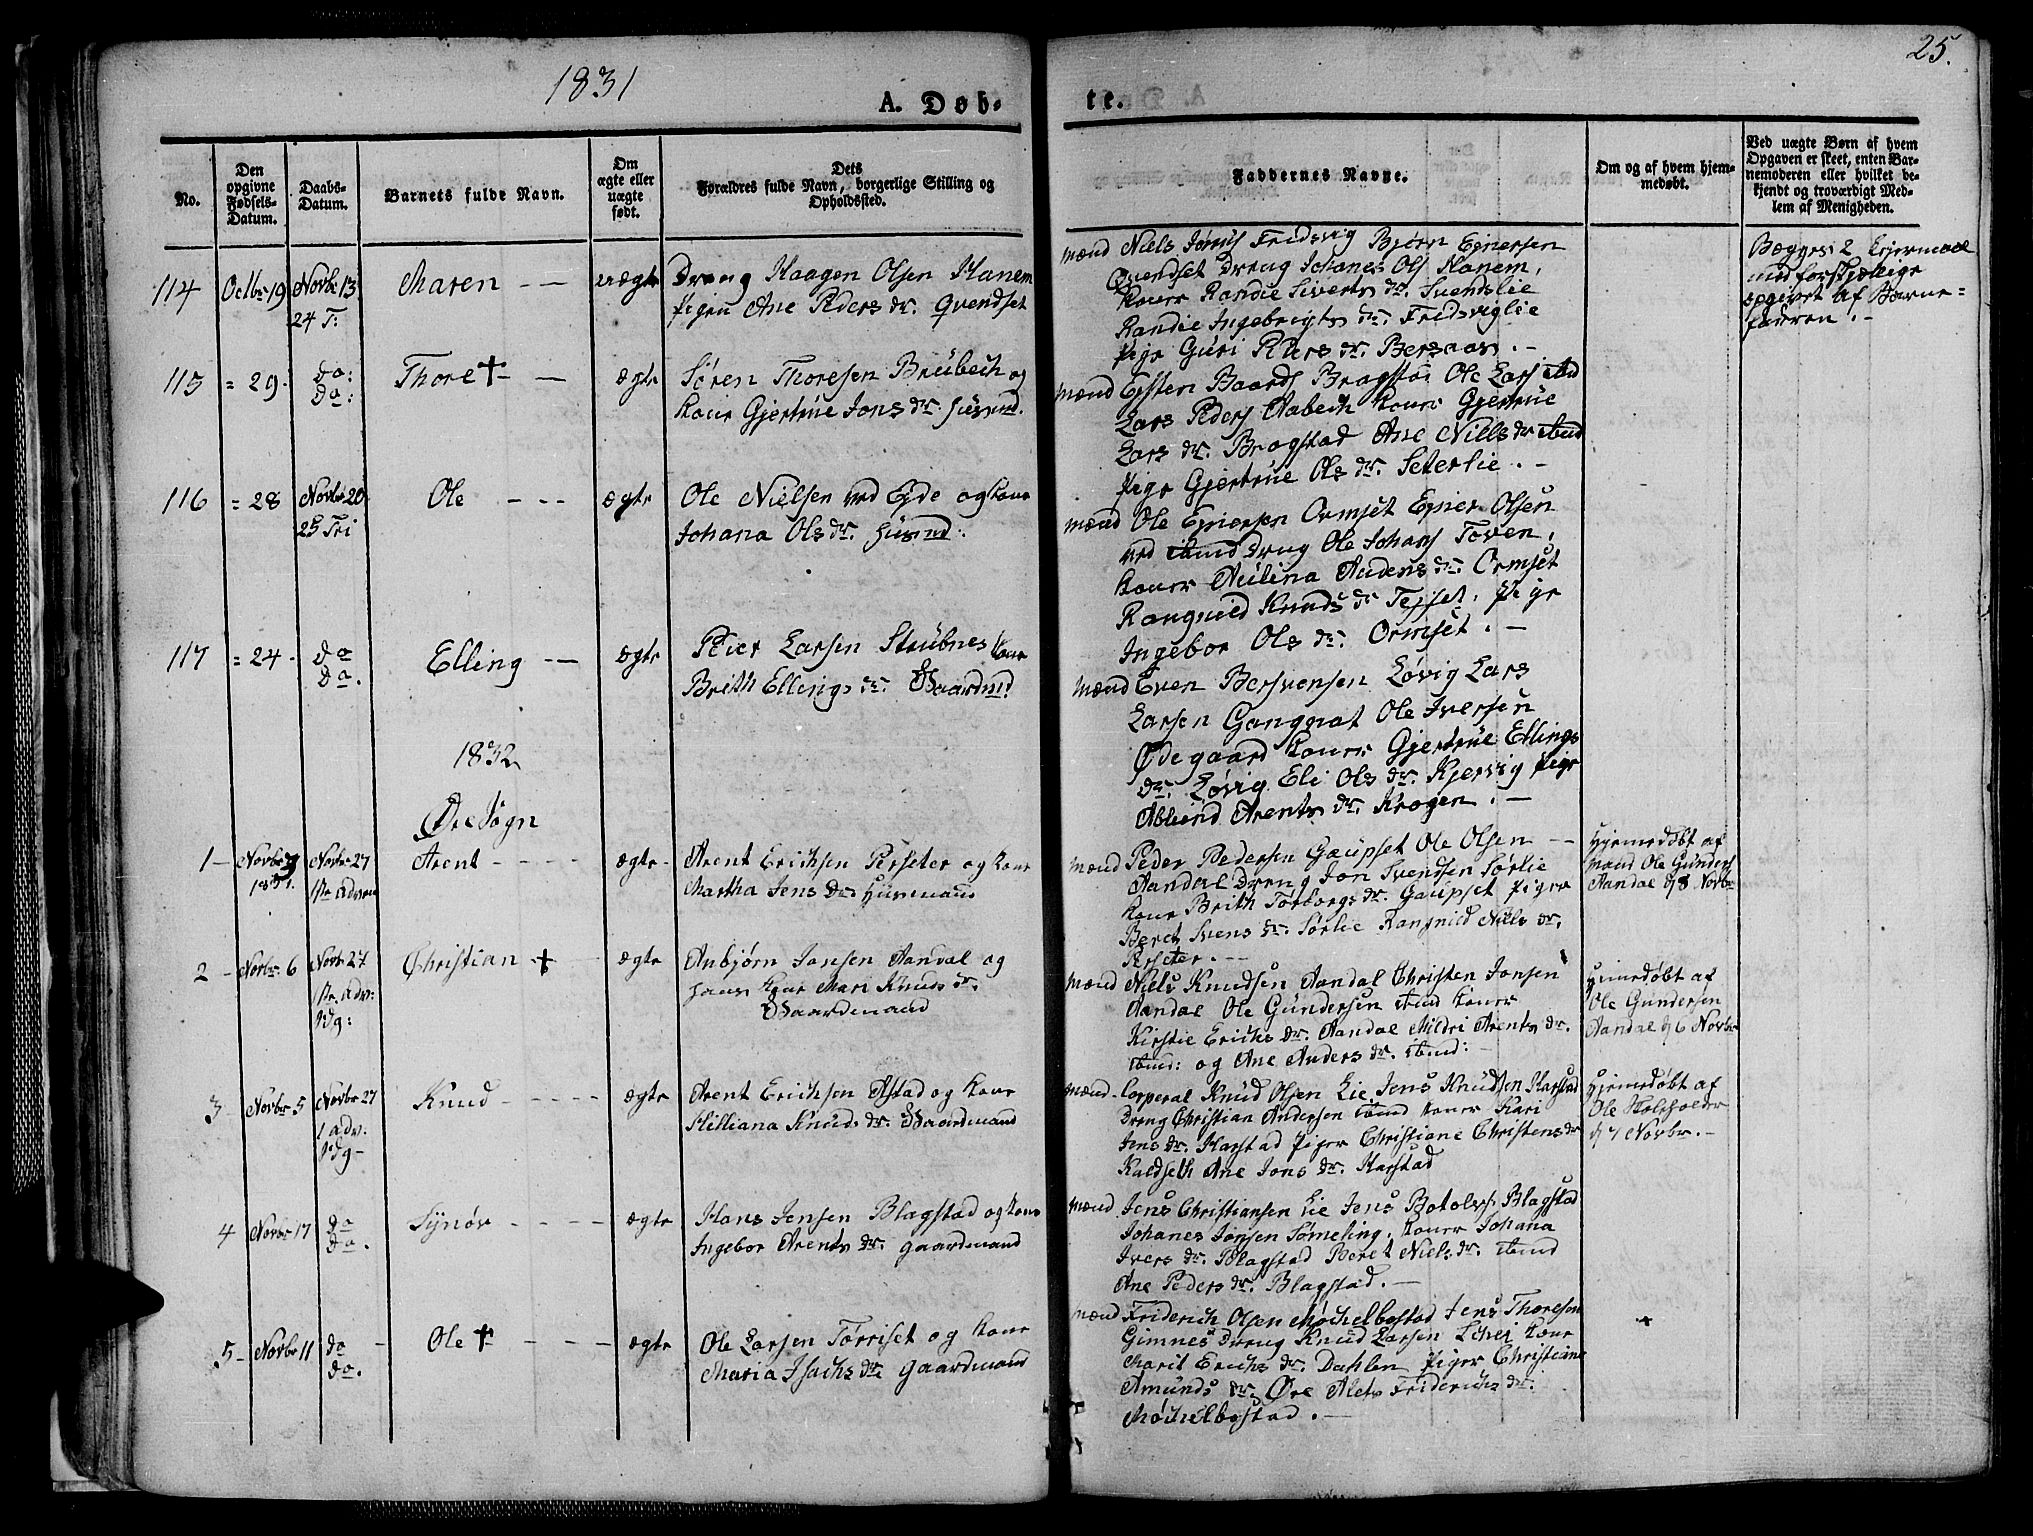 1831
25.
A. Døb-
te.
No.
Den
opgivne
Fødsels-
Datum.
Daabs-
Datum.
Barnets fulde Navn.
Om
ægte eller
uægte
født.
Dets
Forældres fulde Navn, borgerlige Stilling og
Opholdssted.
Faddernes Navne.
Om og af hvem hjem-
medøbt.
Ved uægte Børn af hvem
Opgaven er skeet, enten Bar-
nemoderen eller hvilket be-
kjendt og troværdigt Med-
lem af Menigheden.
114 Octbr 19 Novbr 13 Maren - — uægte Dreng Haagen Olsen Hanem
24 T: Pigen Ane Peders dr. Qvendset
Mænd Niels Jørns Fridsvig Bjørn Ejnersen
Qvendset Dreng Johanes Ols Hanem,
Koner Randie Siverts dr. Svendslie
Randie Ingebrigts dr. Fridsviglie
Pige Guri Peders dr. Bersaas. -
Begges 2 Leiermaal
med forskjellige
opgivet af Barne-
faderen. -
115 = 29. do: Thore + - — ægte Søren Thoresen Brubech og
do: Kone Gjertrue Jons dr. Husmd.
Mænd Eysten Baards Bragstad Ole Lars ibid
Lars Peders Aabech Koner Gjertrue
Lars dr. Bragstad Ane Niels dr ibid
Pige Gjertrue Ols dr. Seterlie. -
116 = 28 Novbr 20 Ole - - - ægte Ole Nielsen ved Eide og Kone
25 Tri Johana Ols dr. Husmd:
Mænd Ole Ejnersen Ormset Ejner Olsen
ved ibid Dreng Ole Johans Toven,
Koner Millina Audens dr. Ormset
Rangnild Knuds dr Tejset, Pige
Ingebor Ols dr. Ormset. -
117 = 24 - do Elling — ægte Peter Larsen Stubnes Kone
do. Brith Ellings dr. Gaardmd
Mænd Even Bersvensen Løvig Lars
Larsen Gangnat Ole Iversen
Ødegaard Koner Gjertrue Ellings
dr. Løvig Eli Ols dr. Kjervig Pige
Ablund Arents dr. Krogen. -
1832
Øre Sogn
1 - Novbr 7 Novbr 27 Arent - - - - ægte - Arent Erichsen Persseter og Kone
1831. 1ste Adven Martha Jens dr Husmand
Mænd Peder Pedersen Gaupset Ole Olsen -
Aandal Dreng Jon Svendsen Sørlie
Kone Brith Torborgs dr. Gaupset Piger
Beret Svens dr. Sørlie Rangnild Niels dr.
Persseter. -
Hjemedøbt af
Mand Ole Gunders
Aandal d/8 Novbr
2 - Novbr. 6 Novbr 27 Christian + ægte Anbjørn Jonsen Aandal og
1ste Adv: hans Kone Mari Knuds dr.
Gaardmand
Mænd Niels Knudsen Aandal Christen Jonsen
Aandal Ole Gundersen ibid Koner
Kirstie Erichs dr. Aandal Mildri Arents dr.
ibid: og Ane Anders dr. ibid: -
Hjemedøbt af
Ole Gundersen
Aandal d/6 Novbr
3 - Novbr 5 Novbr 27 Knud - - - - ægte Arent Erichsen Alstad og Kone
1 adv: Killiana Knuds dr. Gaardmand
Mænd - Corperal Knud Olsen Lie, Jens Knudsen Harstad
Dreng Christian Andersen ibid Koner Kari
Jens dr. Harstad Piger Christiane Christens dr
Kaldseth Ane Jons dr. Harstad
Hjemedøbt af
Ole Holsholder
d/7 Novbr. -
4 Novbr 17 do Synøv - - - - ægte Hans Jensen Blagstad og Kone
do. Ingebor Arents dr. Gaardmand
Mænd Jens Christiansen Lie Jens Botolvs. Blagstad
Johanes Jonsen Sømeling, Koner Johana
Ivers dr. Blagstad Beret Niels dr. ibid
Ane Peders dr. Blagstad. -
5 - Novbr 11 do - Ole + - - - ægte Ole Larsen Torriset og Kone
do. Maria Isachs dr. Gaardmand
Mænd Friderich Olsen Møchelbostad Jens Thoresen
Gimnes Dreng Knud Larsen Lihei Kone
Marit Erichs dr. Dahlen Piger Christiane
Amunds dr. Øre Alets Friderichs dr.
Møchelbostad. -